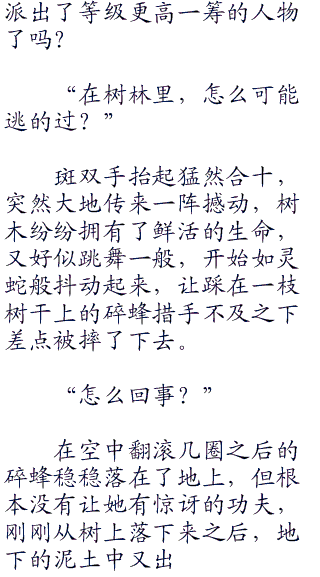 派出了等级更高一筹的人物
了吗？
“在树林里，怎么可能
逃的过？”
斑双手抬起猛然合十，
突然大地传来一阵撼动，树
木纷纷拥有了鲜活的生命，
又好似跳舞一般，开始如灵
蛇般抖动起来，让踩在一枝
树干上的碎蜂措手不及之下
差点被摔了下去。
“怎么回事？”
在空中翻滚几圈之后的
碎蜂稳稳落在了地上，但根
本没有让她有惊讶的功夫，
刚刚从树上落下来之后，地
下的泥土中又出